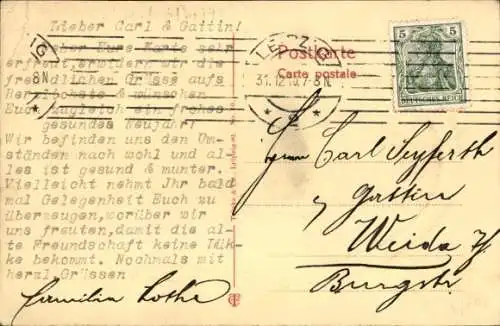 Lieber Carl & Gattin!
Ueber Eure Karte sehr
erfreut, erwidern wir die
freundlichen Grüsse aufs
Herzlichste & wünschen
Euch zugleich ein frohes
gesundes Neujahr!
Wir befinden uns den Um-
ständen nach wohl und al-
les ist gesund & munter.
Vielleicht nehmt Jhr bald
mal Gelegenheit Euch zu
überzeugen, worüber wir
uns freuten, damit die al-
te Freundschaft keine Lük-
ke bekommt. Nochmals mit
herzl. Grüssen
Familie Lothe
LEIPZIG
31.12.10.7-8N.
8N
Postkarte
Carte postale
5 5
DEUTSCHES REICH
Herrn Carl Seyferth
Gattin
Weida i/
Burgstr